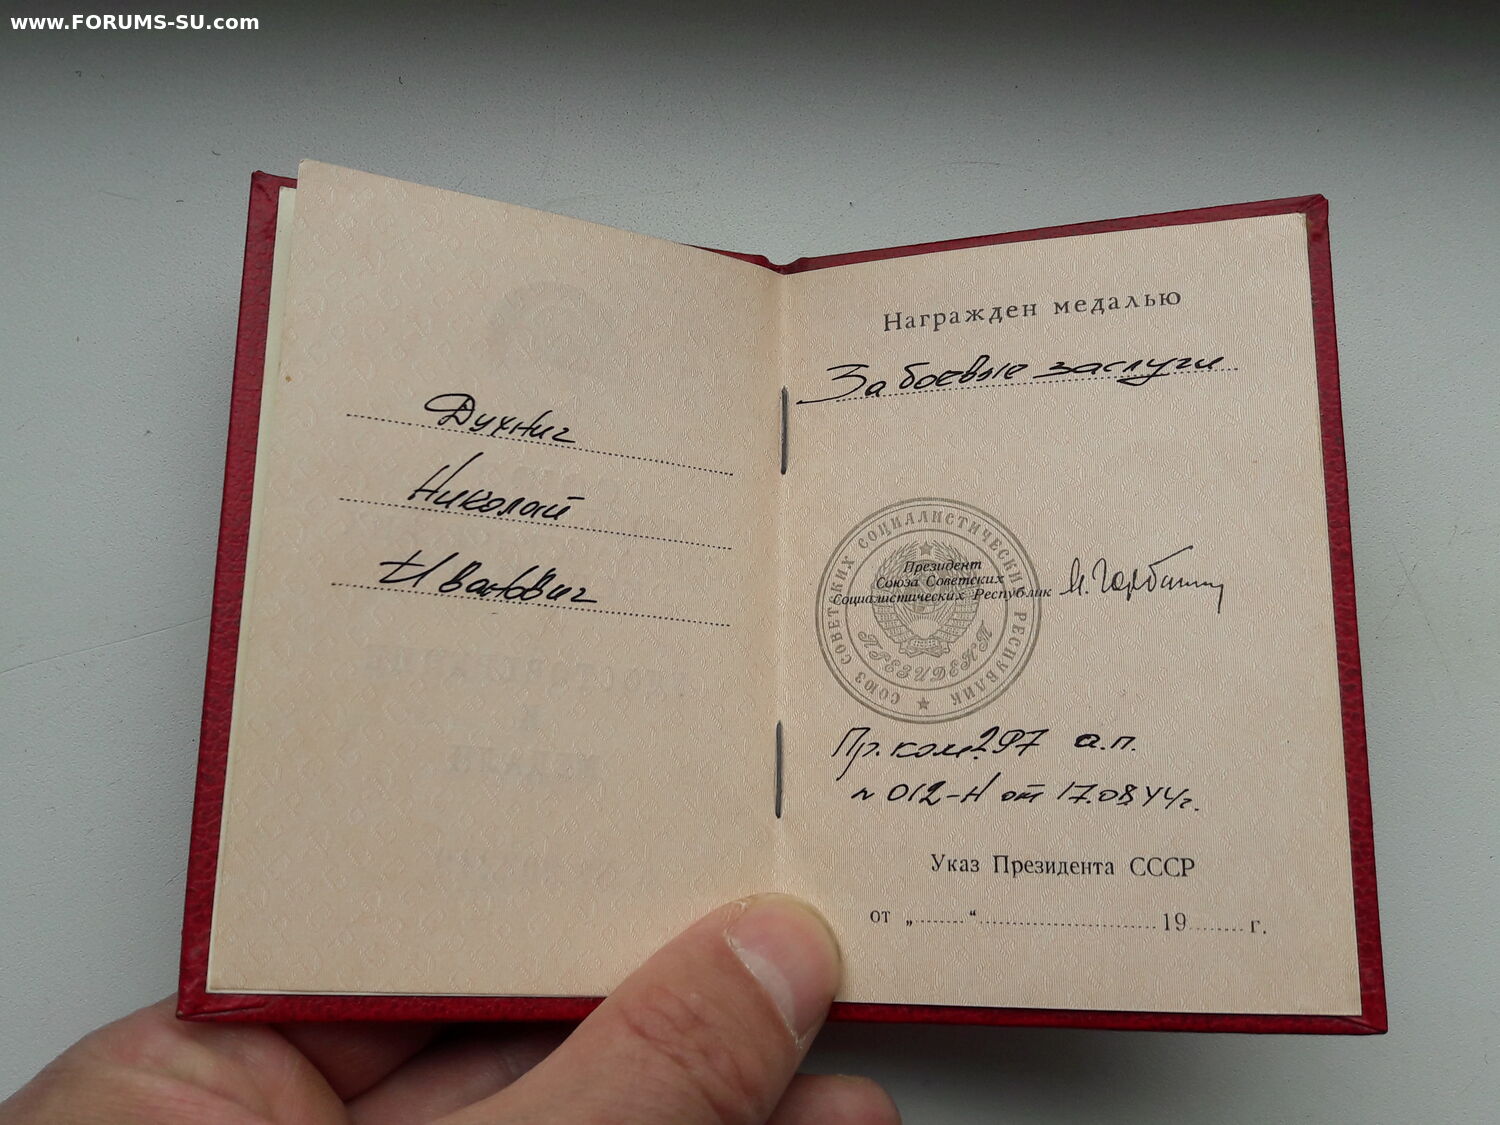 www.FORUMS-SU.com
Духнич
Николай
Иванович
Награжден медалью
За боевые заслуги
СОЮЗ СОВЕТСКИХ СОЦИАЛИСТИЧЕСКИХ РЕСПУБЛИК
Президент
Союза Советских
Социалистических Республик
ПРЕЗИДЕНТ
Пр. ком. 297 а.п.
№ 012-Н от 17.08 44г.
Указ Президента СССР
от „ “ 19 г.